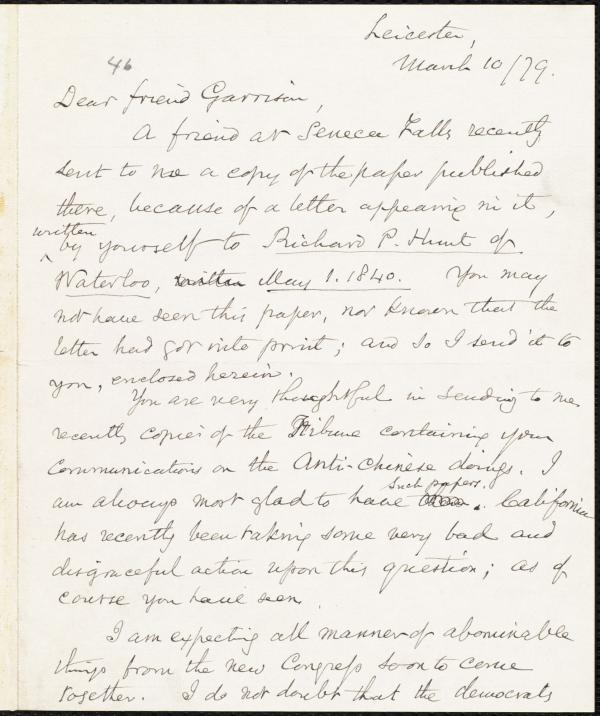 Leicester,
March 10/79.
46
Dear friend Garrison,
A friend at Seneca Falls recently
sent to me a copy of the paper published
there, because of a letter appearing in it,
written
by yourself to Richard P. Hunt of
Waterloo, written May 1. 1840. You may
not have seen this paper, nor known that the
letter had got into print; and so I send it to
you, enclosed herein.
You are very thoughtful in sending to me
recently copies of the Tribune containing your
communications on the Anti-Chinese doings. I
such papers.
am always most glad to have them. California
has recently been taking some very bad and
disgraceful action upon this question; as of
course you have seen.
I am expecting all manner of abominable
things from the new Congress soon to come
together. I do not doubt that the democrats